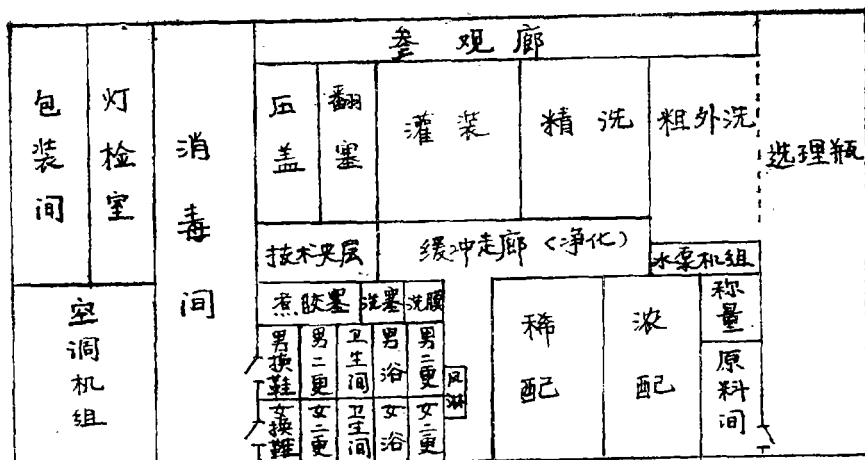 参观廊
包装间
灯检室
消毒间
压盖
翻塞
灌装
精洗
粗外洗
选理瓶
技术夹层
缓冲走廊(净化)
水泵机组
空调机组
煮胶塞
洗塞
洗膜
稀配
浓配
称量
原料间
男换鞋
男二更
卫生间
男浴
男二更
风淋
女换鞋
女二更
卫生间
女浴
女二更